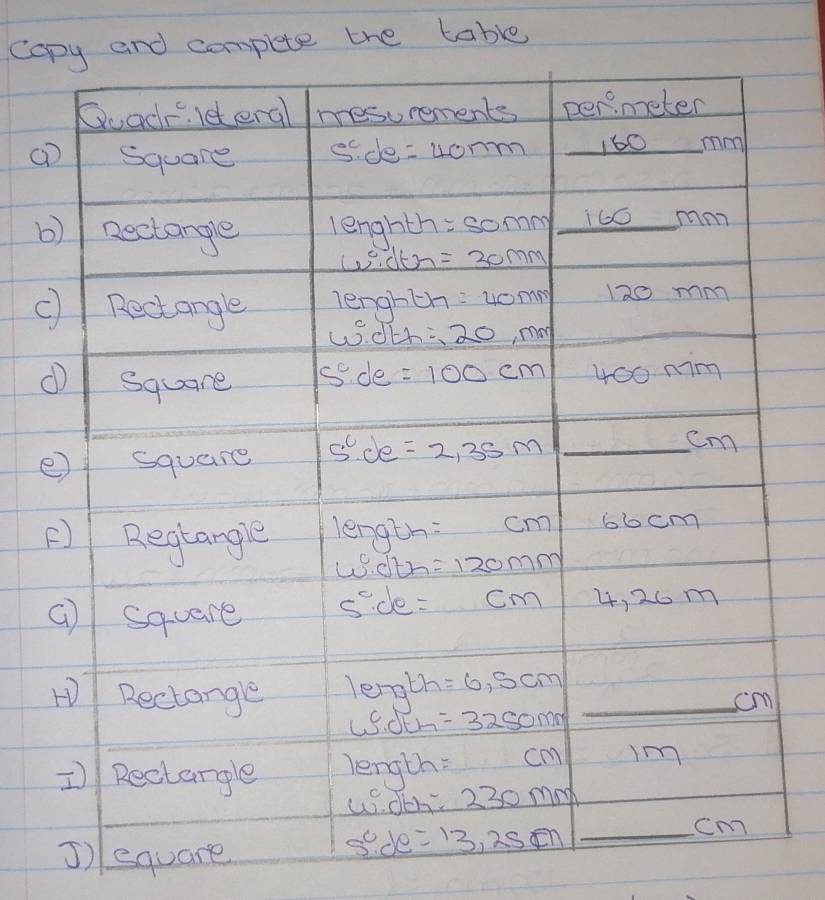 Copy and complete the table
Quadrileteral mesurements perimeter
a) Square side = 40mm 160 mm
b) Rectangle lenghth = 50mm 160 mm
width = 30mm
c) Rectangle lenghth = 40mm 120 mm
width = 20 mm
d) Square side = 100 cm 400 mm
e) square side = 2,35 m ______ cm
F) Regtangle length = cm 66cm
width = 120mm
G) Square side = cm 4,26 m
H) Rectangle length = 6,5cm ______ cm
width = 3250mm
I) Rectangle length = cm 1m
width = 230 mm
J) square side = 13,25 cm ______ cm